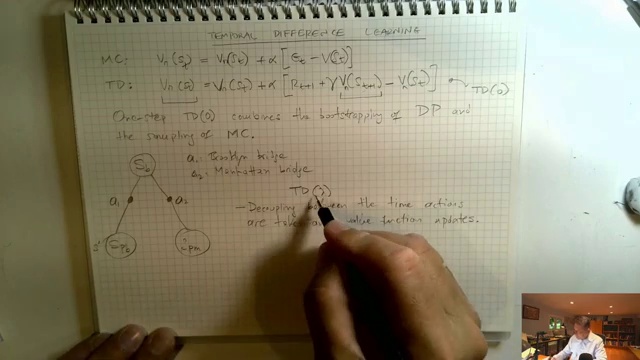 TEMPORAL DIFFERENCE LEARNING
MC: Vπ(St) = Vπ(St) + α [Gt − V(St)]
TD: Vπ(St) = Vπ(St) + α [Rt+1 + γVπ(St+1) − Vπ(St)]
TD(0)
One step TD combines the bootstrapping of DP and the
sampling of MC.
a1: Brooklyn bridge
a2: Manhattan bridge
a1
a2
TD(λ)
- Decoupling between the time actions
are value function updates.